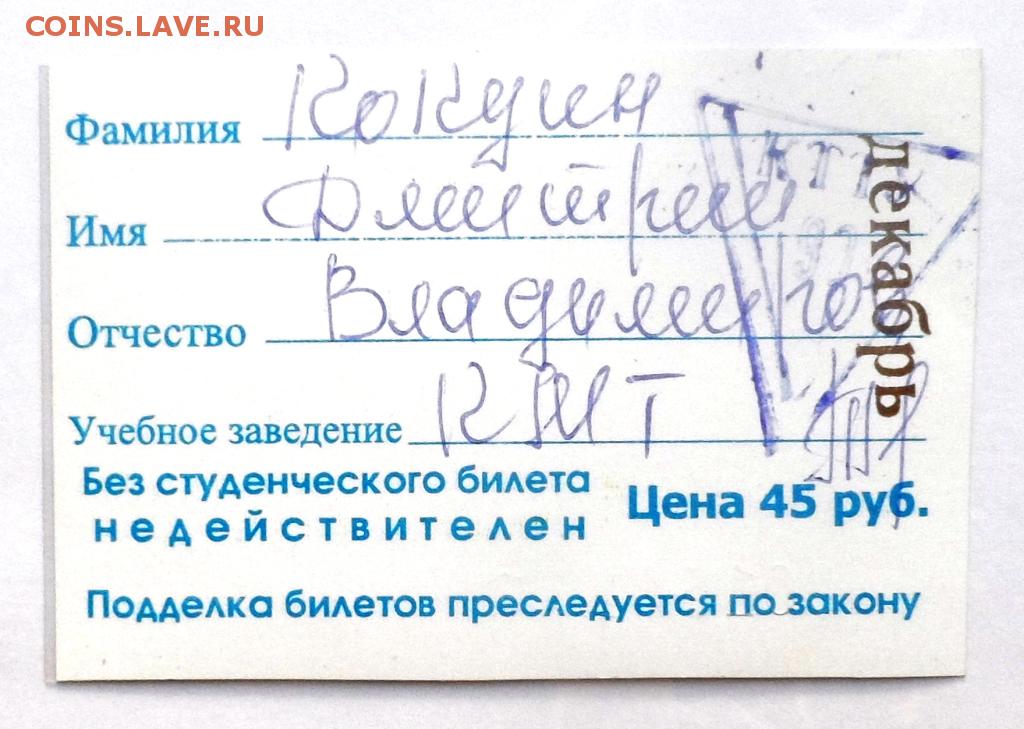 COINS.LAVE.RU
Фамилия Кокдин
Имя Дмитрий
Отчество
Учебное заведение
декабрь
Без студенческого билета
недействителен
Цена 45 руб.
Подделка билетов преследуется по закону